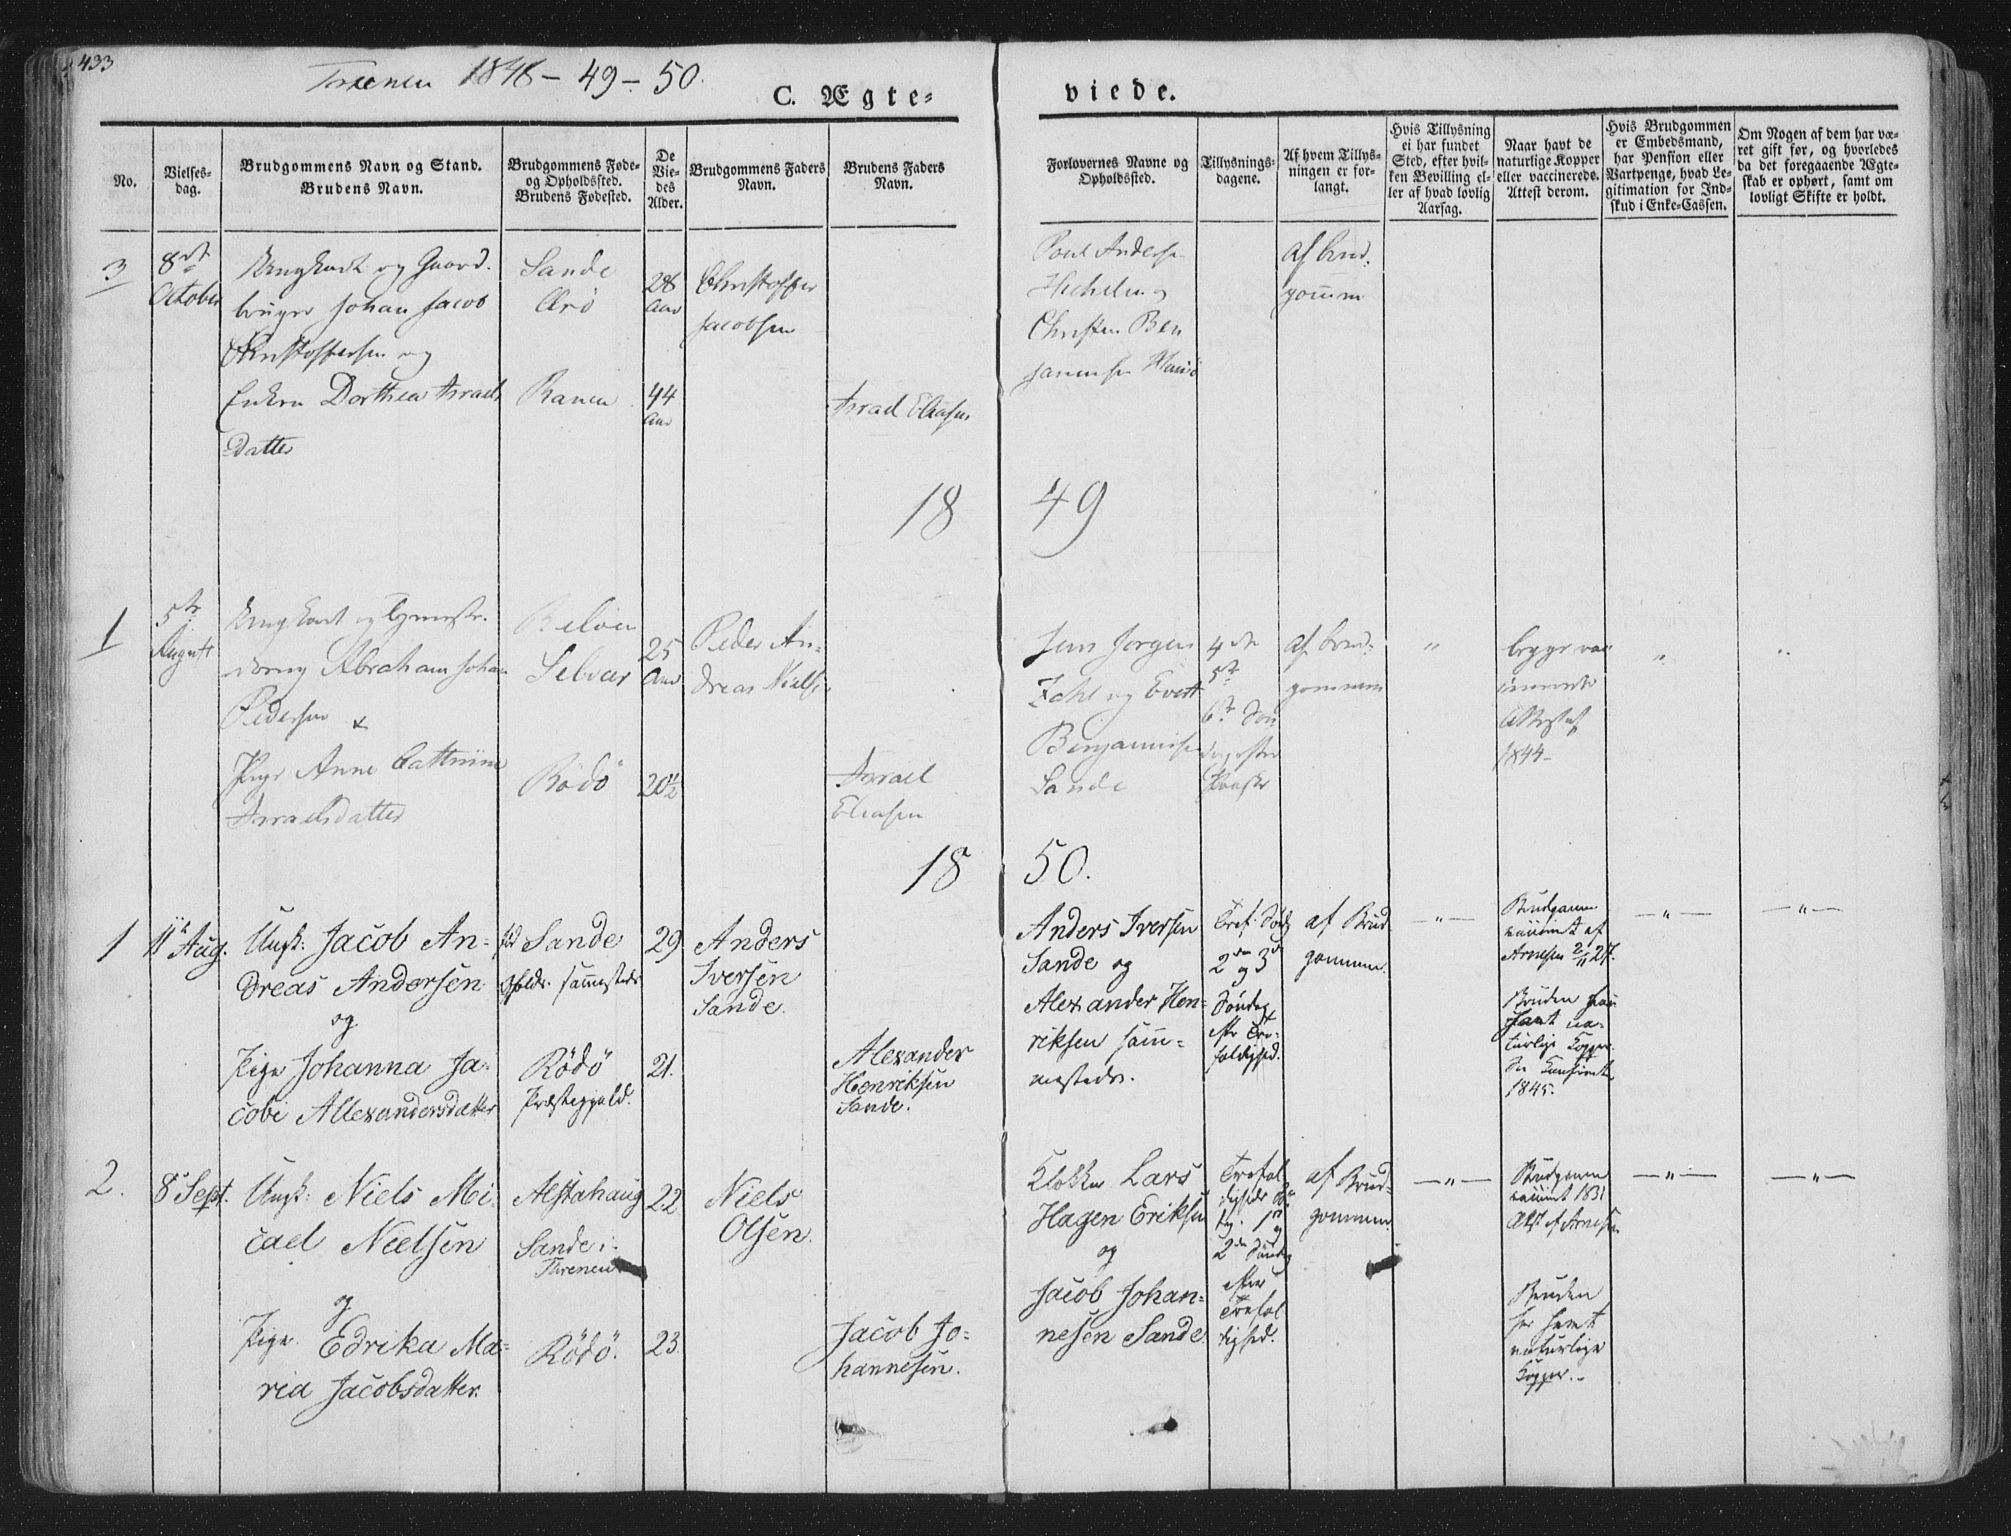 433
Trænen 1848 - 49 - 50.
C. Ægte=
viede.
No.
Vielses-
dag.
Brudgommens Navn og Stand.
Brudens Navn.
Brudgommens Føde-
og Opholdssted.
Brudens Fødested.
De
Vie-
des
Alder.
Brudgommens Faders
Navn.
Brudens Faders
Navn.
Forlovernes Navne og
Opholdssted.
Tillysnings-
dagene.
Af hvem Tillys-
ningen er for-
langt.
Hvis Tillysning
ei har fundet
Sted, efter hvil-
ken Bevilling el-
ler af hvad lovlig
Aarsag.
Naar havt de
naturlige Kopper
eller vaccinerede.
Attest derom.
Hvis Brudgommen
er Embedsmand,
har Pension eller
Vartpenge, hvad Le-
gitimation for Ind-
skud i Enke-Cassen.
Om Nogen af dem har væ-
ret gift før, og hvorledes
da det foregaaende Ægte-
skab er ophørt, samt om
lovligt Skifte er holdt.
3
8de
October
Ungkarl og Gaard-
bruger Johan Jacob
Christoffersen og
Enken Dorthea Israels
datter
Sande
Ranen
28
Aar
44
Aar
Christoffer
Jacobsen
Israel Eliasen
Poul Andersen
og
Christen Ben
jaminsen
af Brud-
gomm
18 49
1
5te
August
Ungkarl og
Abraham Johan
Pedersen
Pige Anne Cathrine
Israelsdatter
Selvær
Rödö
25
Aar
20½
Peder An-
dreas Niels
Israel
Eliasen
Jens Jörgen
Zahl og Evert
Benjaminsen
Sande
4de
5te
6te Søn
dag efter
af Brud-
gommen
"
begge vac
cinerede
Attest af
1844-
"
"
18 50.
1
11te Aug.
Ungk: Jacob An-
dreas Andersen
og
Pige Johanna Ja-
cobi Allexandersdatter
fød Sande
Opholds. sammesteds
Rödö
Præstegjæld.
29
21.
Anders
Iversen
Sande.
Alexander
Henriksen
Sande.
Anders Iversen
Sande og
Alexander Hen-
riksen sam-
mesteds.
Tref. Sönd
2den og 3de
Söndag
eftr Tre-
foldighed.
af Brud
gommen.
—"—
Brudgomm
vaccint af
Arnesen 2/11 27.
Bruden har
havt na-
turlige Kopper.
Confirmeret
1845.
—"—
—"—
2.
8 Sept.
Ungk: Niels Mi-
cael Nielsen
og
Pige Edrika Ma-
ria Jacobsdatter.
Alstahaug
Sande i
Thrænen
Rödö.
22
23.
Niels
Olsen.
Jacob Jo-
hannesen.
Klokker Lars
Hagen Eriksen
og
Jacob Johan-
nesen Sande
Trefol
digheds Sön
dg. 1ste og
2den Söndag
efter
Trefol
dighed.
af Brud-
gommen.
—"—
Brudgomm
vaccint 1831
Atst af Arnesen
Bruden
har havt
naturlige
Kopper.-
—"—
—"—